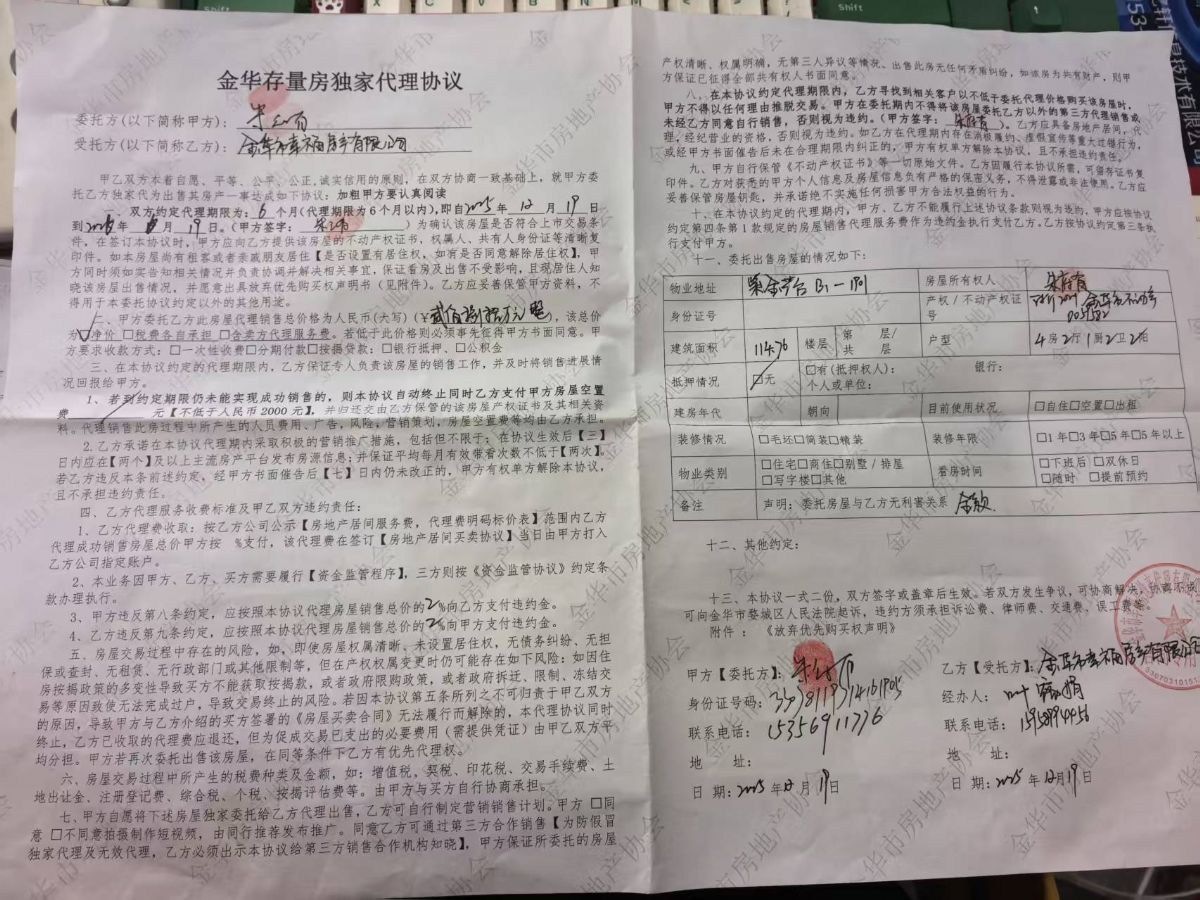 金华存量房独家代理协议
委托方(以下简称甲方)：
受托方(以下简称乙方)：
甲乙双方本着自愿、平等、公平、公正,诚实信用的原则，在双方协商一致基础上，就甲方委
托乙方独家代为出售其房产一事达成如下协议：加粗甲方要认真阅读
一、双方约定代理期限为：6 个月(代理期限为6个月以内),即自2025年 12 月 19 日
到 年 月 19 日。(甲方签字： ）为确认该房屋是否符合上市交易条
件，在签订本协议时，甲方应向乙方提供该房屋的不动产权证书，权属人、共有人身份证等清晰复
印件。如本房屋尚有租客或者亲戚朋友居住【是否设置有居住权，如有是否同意解除居住权】，甲
方同时须如实告知相关情况并负责协调并解决相关事宜，保证看房及出售不受影响，且现居住人知
晓该房屋出售情况，并愿意出具放弃优先购买权声明书（见附件）。乙方应妥善保管甲方资料，不
得用于本委托协议约定以外的其他用途。
二、甲方委托乙方此房屋代理销售总价格为人民币(大写)(￥ )，该总价
为☑净价 □税费各自承担 □含卖方代理服务费。若低于此价格则必须事先征得甲方书面同意。甲
方要求收款方式：□一次性收费□分期付款□按揭贷款：□银行抵押、□公积金
三、在本协议约定的代理期限内，乙方保证专人负责该房屋的销售工作，并及时将销售进展情
况回报给甲方。
1、若到约定期限仍未能实现成功销售的，则本协议自动终止同时乙方支付甲方房屋空置
费 元【不低于人民币2000元】，并归还交由乙方保管的该房屋产权证书及其相关资
料。代理销售此房过程中所产生的人员费用、广告，风险，营销策划，房屋空置费等均由乙方承担。
2.乙方承诺在本协议代理期内采取积极的营销推广措施，包括但不限于：在协议生效后【三】
日内应在【两个】及以上主流房产平台发布房源信息；并保证平均每月有效带看次数不低于【两次】。
若乙方违反本条前述约定，经甲方书面催告后【七】日内仍未改正的，甲方有权单方解除本协议，
且不承担违约责任。
四、乙方代理服务收费标准及甲乙双方违约责任：
1、乙方代理费收取：按乙方公司公示【房地产居间服务费，代理费明码标价表】范围内乙方
代理成功销售房屋总价甲方按 %支付，该代理费在签订【房地产居间买卖协议】当日由甲方打入
乙方公司指定账户。
2、本业务因甲方、乙方、买方需要履行【资金监管程序】，三方则按《资金监管协议》约定条
款办理执行。
3、甲方违反第八条约定，应按照本协议代理房屋销售总价的2%向乙方支付违约金。
4、乙方违反第九条约定，应按照本协议代理房屋销售总价的2%向甲方支付违约金。
五、房屋交易过程中存在的风险，如，即使房屋权属清晰、未设置居住权，无债务纠纷、无担
保或查封、无租赁、无行政部门或其他限制等，但在产权权属变更时仍可能存在如下风险：如因住
房按揭政策的多变性导致买方不能获取按揭款，或者政府限购政策，或者政府拆迁、限制、冻结交
易等原因致使无法完成过户，导致交易终止的风险。若因本协议第五条所列之不可归责于甲乙双方
的原因，导致甲方与乙方介绍的买方签署的《房屋买卖合同》无法履行而解除的，本代理协议同时
终止，乙方已收取的代理费应退还，但为促成交易已支出的必要费用（需提供凭证）由甲乙双方平
均分担。甲方若再次委托出售该房屋，在同等条件下乙方有优先代理权。
六、房屋交易过程中所产生的税费种类及金额，如：增值税，契税、印花税、交易手续费、土
地出让金、注册登记费、综合税、个税、按揭评估费等。由甲方与买方自行协商承担。
七、甲方自愿将下述房屋独家委托给乙方代理出售，乙方可自行制定营销销售计划。甲方 □同
意 □不同意拍摄制作短视频，由同行推荐发布推广。同意乙方可通过第三方合作销售【为防假冒
独家代理及无效代理，乙方必须出示本协议给第三方销售合作机构知晓】，甲方保证所委托的房屋
产权清晰、权属明确，无第三人异议等情况、出售此房无任何矛盾纠纷，如该房为共有财产，则甲
方保证已征得全部共有权人书面同意。
八、在本协议约定代理期限内，乙方寻找到相关客户以不低于委托代理价格购买该房屋时，
甲方不得以任何理由推脱交易。甲方在委托期内不得将该房屋委托乙方以外的第三方代理销售或
未经乙方同意自行销售，否则视为违约。(甲方签字： ）。乙方应具备房地产居间，代
理，经纪营业的资格，否则视为违约。如乙方在代理期内存在消极履约、虚假宣传等重大过错行为，
或经甲方书面催告后未在合理期限内纠正的，甲方有权单方解除本协议，且不承担违约责任。
九、甲方自行保管《不动产权证书》等一切原始文件。乙方因履行本协议所需，可留存证书复
印件。乙方对获悉的甲方个人信息及房屋信息负有严格的保密义务，不得泄露或非法使用。乙方应
妥善保管房屋钥匙，并承诺绝不实施任何损害甲方合法权益的行为。
十、在本协议约定的代理期内，甲方、乙方不能履行上述协议条款则视为违约，甲方应按协议
约定第四条第1款规定的房屋销售代理服务费作为违约金执行支付乙方。乙方按协议约定第三条执
行支付甲方。
十一、委托出售房屋的情况如下：
物业地址 紫金学台 B1-1901 房屋所有权人
身份证号 产权/不动产权证号
建筑面积 114.76 楼层 第 层/共 层 户型 4房2厅1厨2卫2阳
抵押情况 ☑无 □有(抵押权人)： 银行：
个人或单位：
建房年代 朝向 目前使用状况 □自住□空置□出租
装修情况 □毛坯□简装□精装 装修年限 □1年□3年□5年□5年以上
物业类别 □住宅□商住□别墅/排屋
□写字楼□其他 看房时间 □下班后 □双休日
□随时 □提前预约
备注 声明：委托房屋与乙方无利害关系
十二、其他约定：
十三、本协议一式二份，双方签字或盖章后生效。若双方发生争议，可协商解决，协商不成
可向金华市婺城区人民法院起诉，违约方须承担诉讼费、律师费、交通费、误工费等。
附件：《放弃优先购买权声明》
甲方【委托方】：
身份证号码：
联系电话：15356911776
地 址：
日 期：2025年 12 月 19日
乙方【受托方】：
经办人：
联系电话：15958994456
地 址：
日 期：2025 年 12月 19日